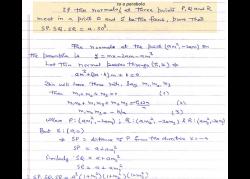 to a parabola
If the normals at three points P, Q and R
meet in a point O and S be the focus, prove that
SP. SQ. SR = a. SO².
The normal at the point (am², -2am) on
the parabola is y = mx - 2am - am³
Let this normal passes through (h, k)
am³ + (2a - h)m + k = 0
This will have three roots, say m₁ m₂ m₃
m₁ + m₂ + m₃ = 0 (1)
m₁m₂ + m₂m₃ + m₃m₁ = (2)
m₁ m₂ m₃ = -k/a (3)
where P : (am₁², -2am₁) Q : (am₂², -2am₂) & R : (am₃², -2am₃)
But S : (a, 0)
SP = distance of P from the directrix x = -a
SP = a + am₁²
Similarly SQ = a + am₂²
SR = a + am₃²
SP. SQ. SR = a³(1+m₁²)(1+m₂²)(1+m₃²)